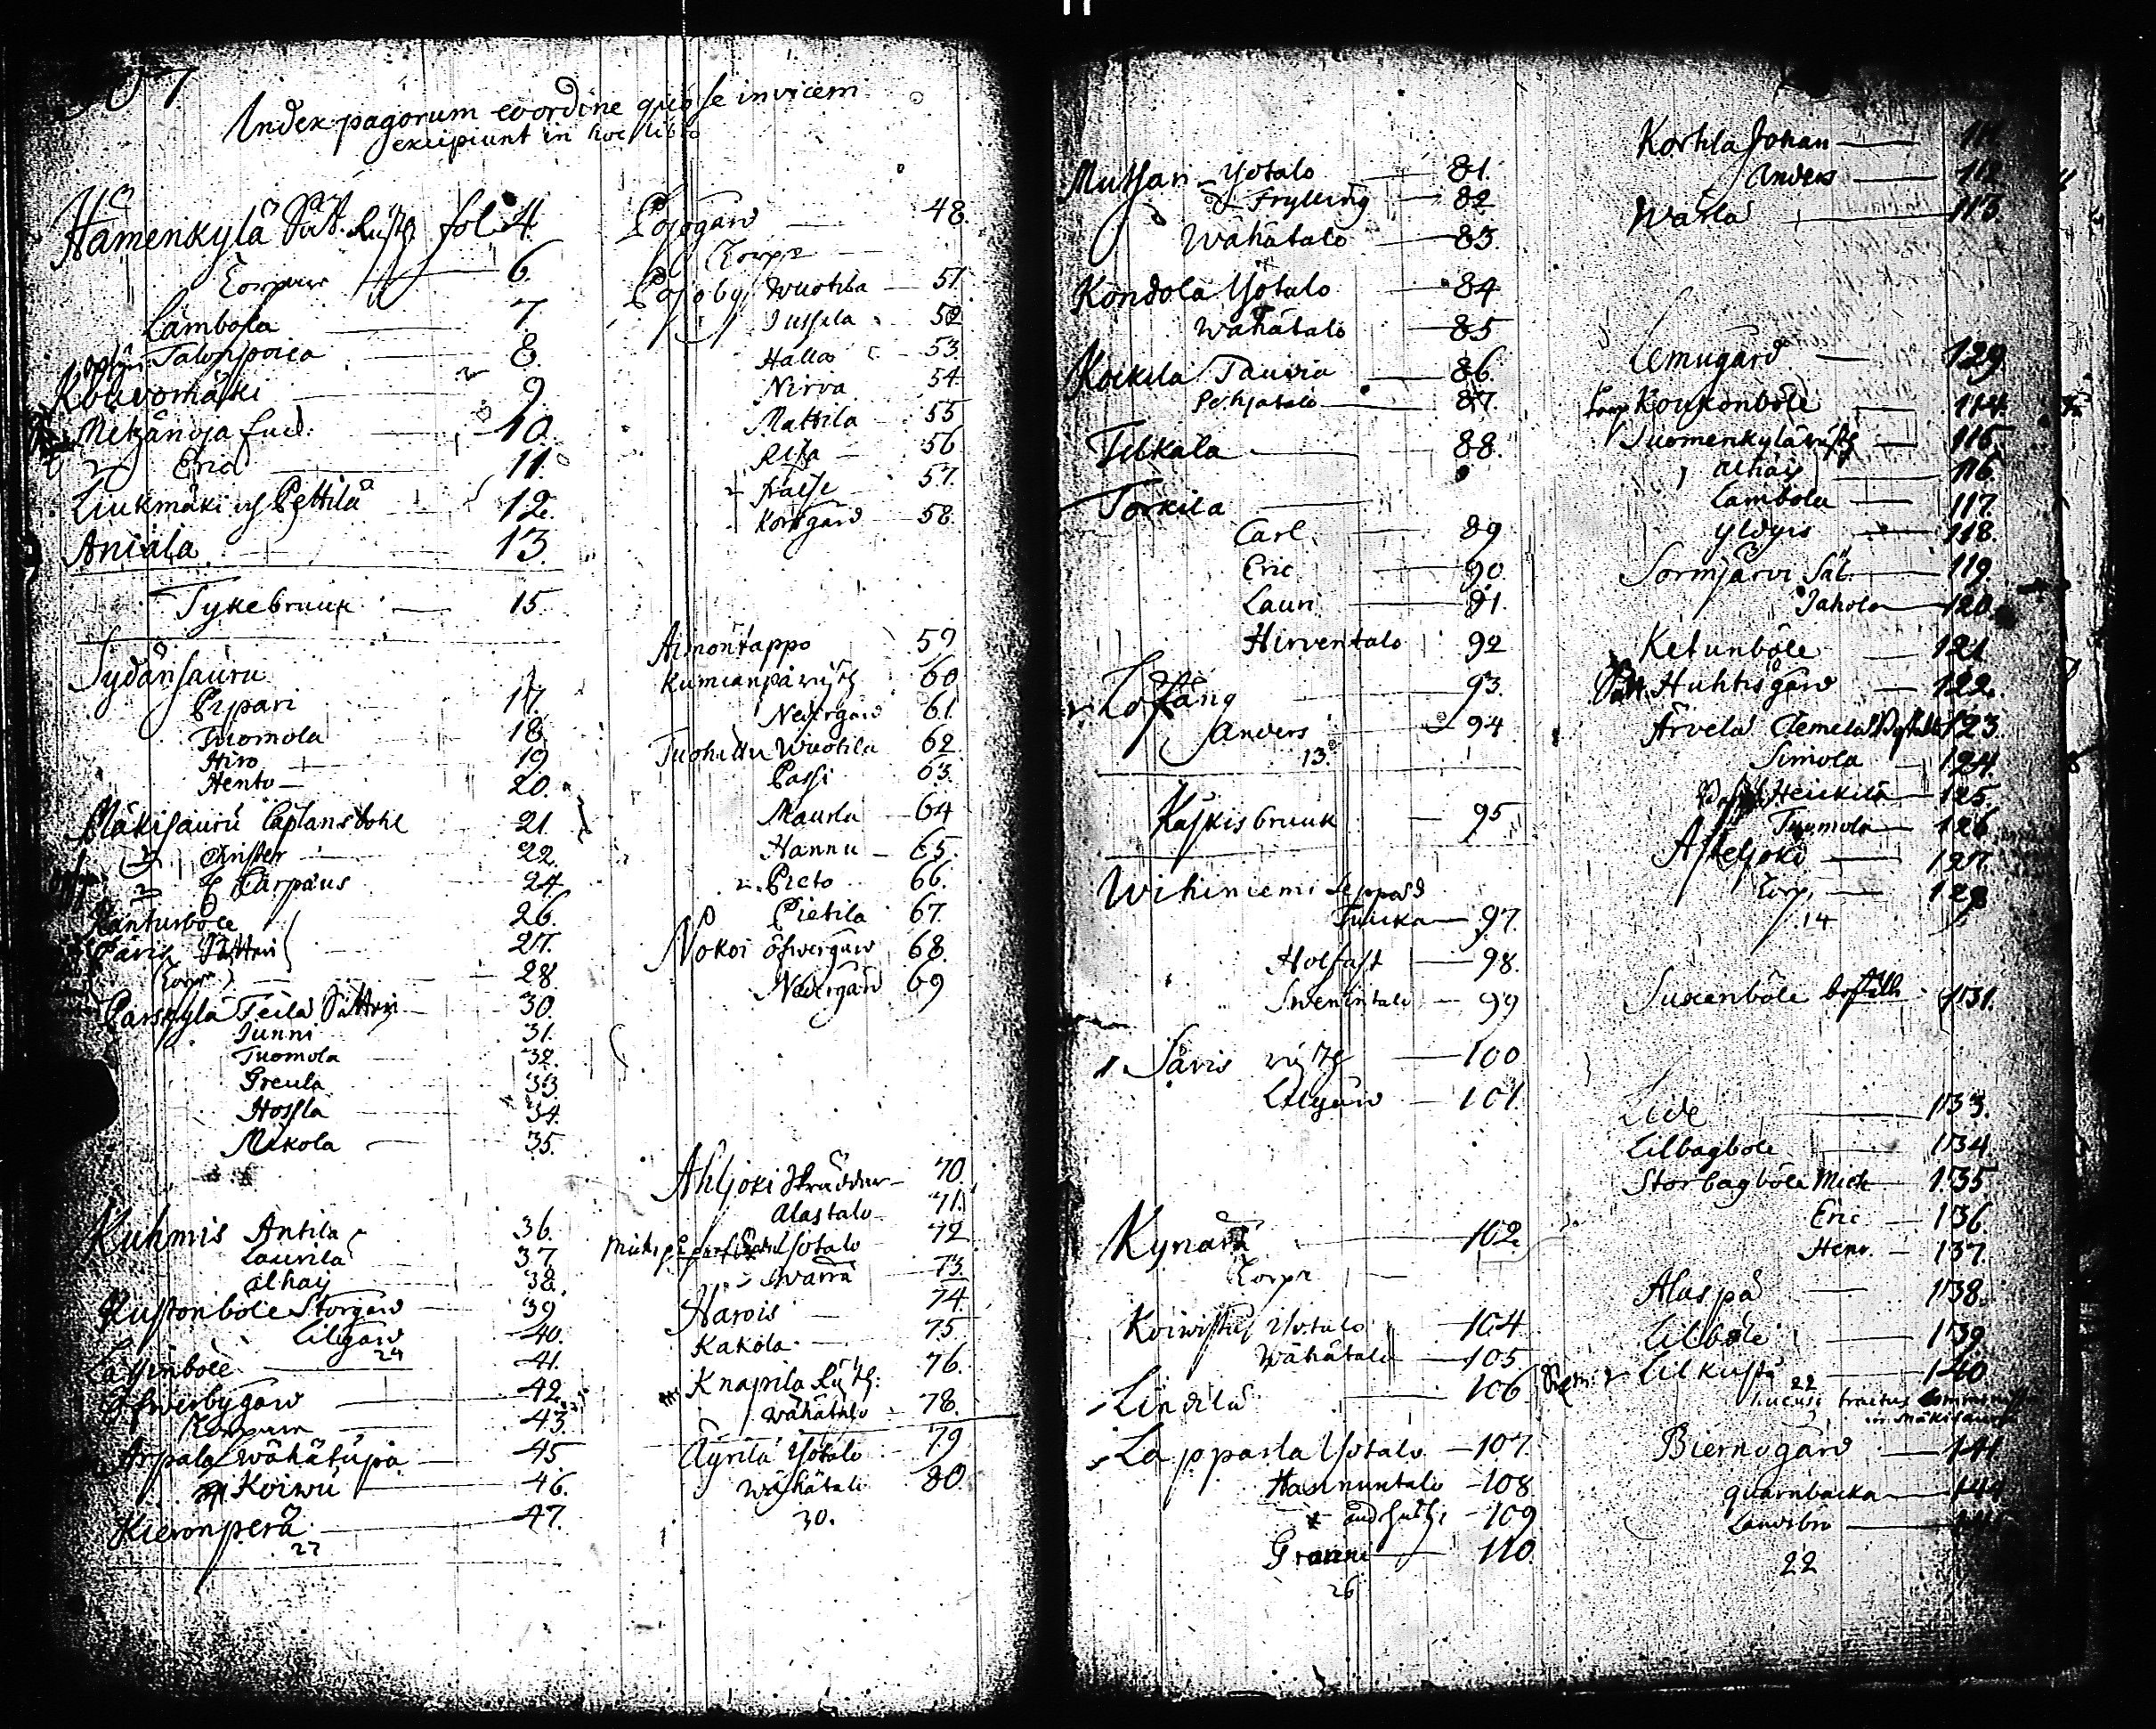 Index pagorum eo ordine quo se invicem
excipiunt in hoc libro
Hämenkylä Sät. Rusth. fol. 4.
Torpare 6.
Lambola 7.
Talonpoica 8.
Kouvomäki 9.
Metzänoja 10.
Eric 11.
Liukmäki Pettilä 12.
Aniala 13.
Tykebruuk 15.
Sydänsauru
Pipari 17.
Tuomola 18.
Hiro 19
Hento 20.
Mäkisauru Caplansbohl 21.
Christer 22.
Carpäus 24.
Kanturböle 26.
Päris Sätteri 27.
Torpr 28.
Parskylä Teila Sätteri 30.
Junni 31.
Tuomola 32.
Greula 33
Hossla 34.
Mikola 35.
Kuhmis Antila 36.
Laurila 37.
alhay 38.
Kustonböle Storgård 39
Lillgård 40.
24
41.
Öfwerbygård 42.
Torpare 43.
Arpala wähätupa 45
Koiwu 46.
Kieronperä 47.
27
Pojogård 48.
Torpr
Pojoby Wuotila 51.
Jussila 52
Halla 53.
Nirva 54
Mattila 55
Rissa 56
57.
Korsgård 58.
Aimontappo 59
Kumianpä rusth 60
Nedergård 61.
Tuohittu Wuotila 62.
Passi 63.
Maurla 64
Hannu 65.
Pieto 66.
Pietila 67.
Nokoi öfwergård 68.
Nedergård 69
Ahljoki Skräddar 70.
Alastalo 71.
Ysotalo 72
Swarra 73.
Harois 74.
Kakola 75
Knapila Rusth: 76.
wähätalo 78.
Äyrilä Ysotalo 79
wähätalo 80.
30.
Mutsari Ysotalo 81.
Frylling 82
Wähätalo 83.
Kondola Ysotalo 84
wähätalo 85
Kockila Tauria 86.
Pohjatalo 87.
Tilkala 88.
Torkila
Carl 89
Eric 90.
Lauri 91.
Hirventalo 92
Lofsäng 93.
Anders 94
13.
Kåskisbruuk 95
Wihiniemi Seppos
Tuucka 97.
Holfast 98.
Swenintalo 99
Säris rusth 100
Lilgård 101.
Kynärä 102.
Torpr
Koiwisto Ysotalo 104
Wähätalo 105
Lindila 106
Lapparla Ysotalo 107.
Hannuntalo 108
109
Granni 110.
26
Kortila Johan 111.
Anders 112
Warla 113
Lemugård 129.
Koukonböle 114.
Suomenkylä rusth 115.
alhais 116.
Lambola 117.
ylöys 118.
Sormjärvi Sät. 119.
Jahola 120.
Ketunböle 121
Sätt. Huhtis gård 122.
Arvela Clemola 123.
Simola 124.
Heickilä 125.
Tuomola 126
Asteljoki 127
Torp. 128
14
Suxenböle bostelle 131.
Lide 133.
Lilbagböle 134.
Storbagböle Mich 135.
Eric 136.
Henr. 137.
Alaspä 138.
Lilböle 139.
Lilkustö 140
22
Biernogård 141
Quarnbacka 144
Landsbro
22